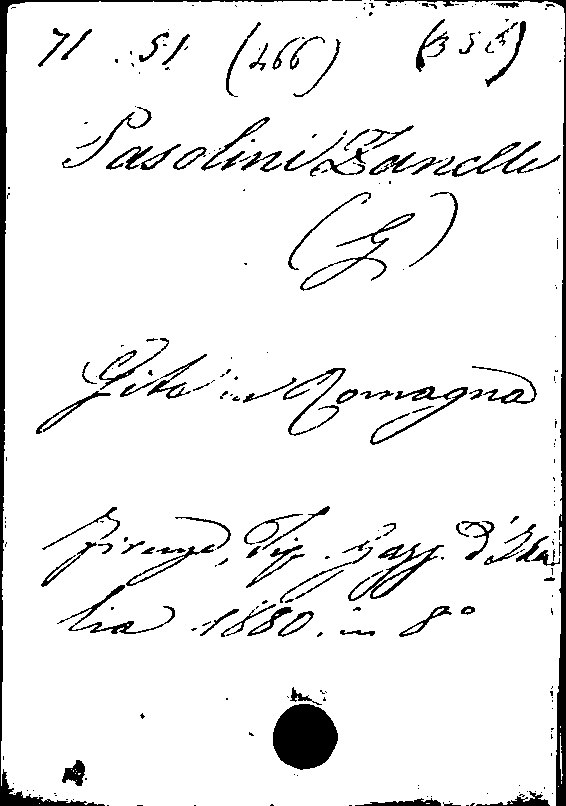 71 51 (466) (355)
Pasolini Zanelli
(G)
Gite in Romagna
Firenze, Tip. Gazz. d'Ita
lia 1880. in 8°